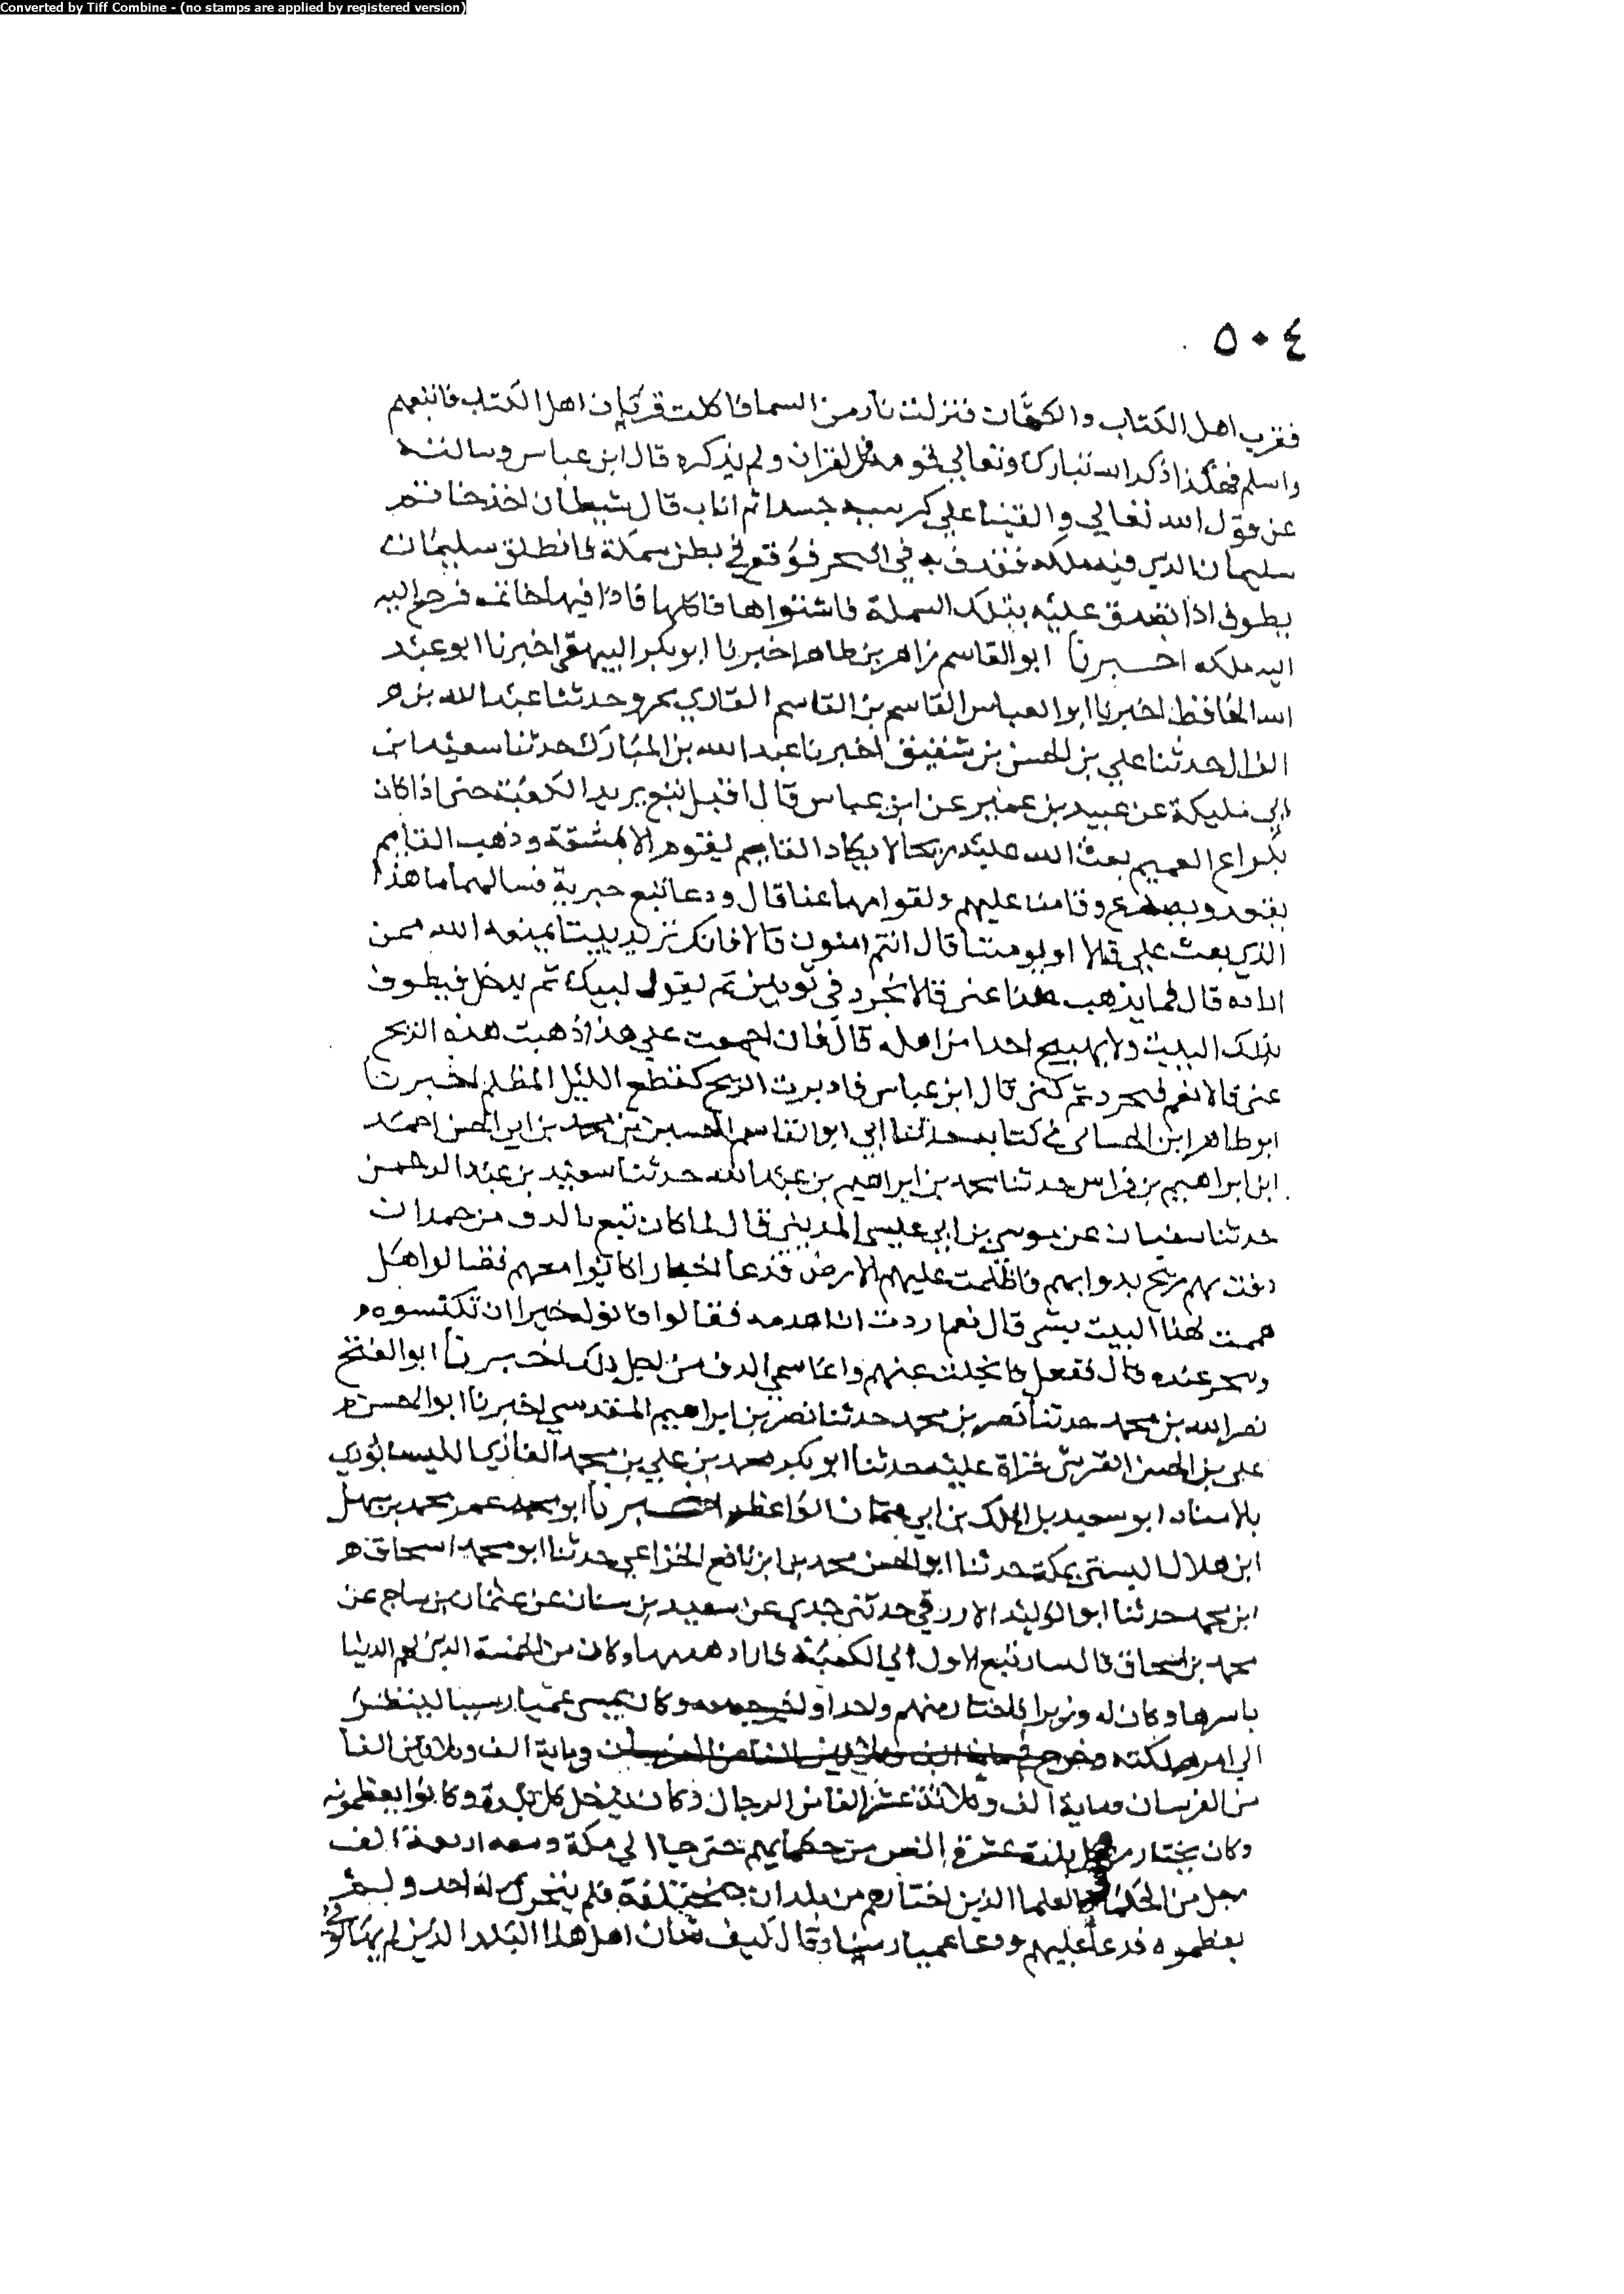 Converted by Tiff Combine - (no stamps are applied by registered version)
٥٠٤
فقرب اهل الكتاب والكهان فنزلت نار من السما فاكلت قربان اهل الكتاب فاتبعهم
واسلم فهكذا ذكر الله تبارك وتعالي قومه في القران ولم يذكره قال ابن عباس وسالته
عن قول الله تعالي والقينا علي كرسيه جسدا ثم اناب قال شيطان اخذ خاتم
سليمان الذي فيه ملكه فقذف به في البحر فوقع في بطن سمكة فانطلق سليمان
يطوف اذا تصدق عليه بتلك السمكة فاشتواها فاكلها فاذا فيها خاتمه فرجع اليه
اليه ملكه اخبرنا ابو القاسم زاهر بن طاهر اخبرنا ابو بكر البيهقي اخبرنا ابو عبد
الله الحافظ اخبرنا ابو العباس القاسم بن القاسم القاري بمرو حدثنا عبد الله بن
الغزال حدثنا علي بن الحسن بن شفيق اخبرنا عبد الله بن المبارك حدثنا سعيد ابن
ابي مليكة عن عبيد بن عمير عن ابن عباس قال اقبل تبع يريد الكعبة حتى اذا كان
بكراع الغميم بعث الله عليه ريحا لا يكاد القايم يقوم الا بمشقة وذهب القايم
يقعد ويصرع وقامت عليهم ولقوا منها عنا قال ودعا تبع حبرية فسالهما ما هذا
الذي بعث علي قالا او تومننا قال انتم امنون قالا فانك تريد بيتا يمنعه الله ممن
اراده قال فما يذهب هذا عني قالا تجرد في ثوبين ثم تقول لبيك ثم تدخل فتطوف
بذلك البيت ولا تهيج احدا من اهله قال فان اجمعت علي هذا ذهبت هذه الريح
عني قالا نعم فتجرد ثم لبى قال ابن عباس فادبرت الريح كقطع الليل المظلم اخبرنا
ابو طاهر ابن في كتابه حدثنا ابي ابو القاسم الحسين بن محمد بن ابي الحسن احمد
ابن ابراهيم بن فراس حدثنا محمد بن ابراهيم بن عبد الله حدثنا سعيد بن عبد الرحمن
حدثنا سفيان عن موسي بن ابي عيسى المديني قال لما كان تبع بالدف من جمدان
دفت بهم ريح بدوابهم فاظلمت عليهم الارض فدعا احبارا كانوا معهم فقالوا هل
هممت لهذا البيت بشي قال نعم اردت ان اهدمه فقالوا فانو له خيرا ان تكسوه
وتنحر عنده قال ففعل فانجلت عنهم وانما سمي الدف من اجل ذلك اخبرنا ابو الفتح
نصر الله بن محمد حدثنا نصر بن محمد حدثنا نصر بن ابراهيم المقدسي اخبرنا ابو الحسن
علي بن الحسن القرشي قراة عليه حدثنا ابو بكر محمد بن علي بن محمد الغازي النيسابوري
بلاسناد ابو سعيد بن الملك بن ابي عثمان الواعظ اخبرنا ابو محمد عمر محمد بن سهل
ابن هلال البستي بمكة حدثنا ابو الحسن محمد بن ابن نافع الخزاعي حدثنا ابو محمد اسحاق
ابن محمد حدثنا ابو الوليد الازرقي حدثني جدي عن سعيد بن سنان عن عثمان بن ساج عن
محمد بن اسحاق قال سار تبع الاول الي الكعبة فاراد هدمها وكان من الخمسة الذين لهم الدنيا
باسرها وكان له وزيرا فاختار منهم واحدا واخرجه معه وكان يسمى عميارسيا لينظر
الي امر مملكته وخرج في ماية الف وثلاثين الفا
من الفرسان وماية الف وثلاثة عشر الفا من الرجال وكان يدخل كل بلدة وكانوا يعظمونه
وكان يختار من كل بلدة عشرة انفس من حكمايهم حتى جا الي مكة ومعه اربعة الف
رجل من الحكما والعلما الذين اختارهم من بلدان مختلفة فلم يتحرك له احد ولم
يعظموه فدعا عليهم ودعا عميارسيا وقال كيف شان اهل هذا البلد الذين لم يهابوني